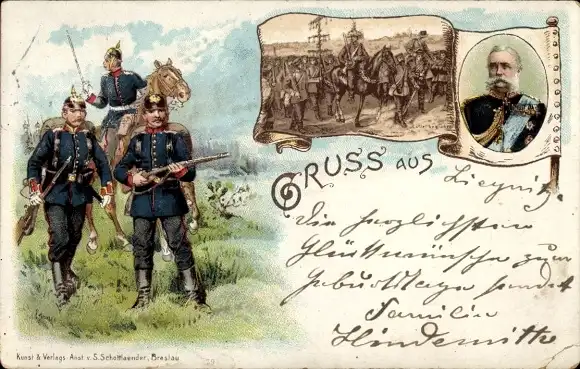 GRUSS AUS
Liegnitz.
Die herzlichsten
Glückwünsche zum
Geburtstage sendet
Familie
Kunst & Verlags-Anst. v. S. Schottlaender, Breslau